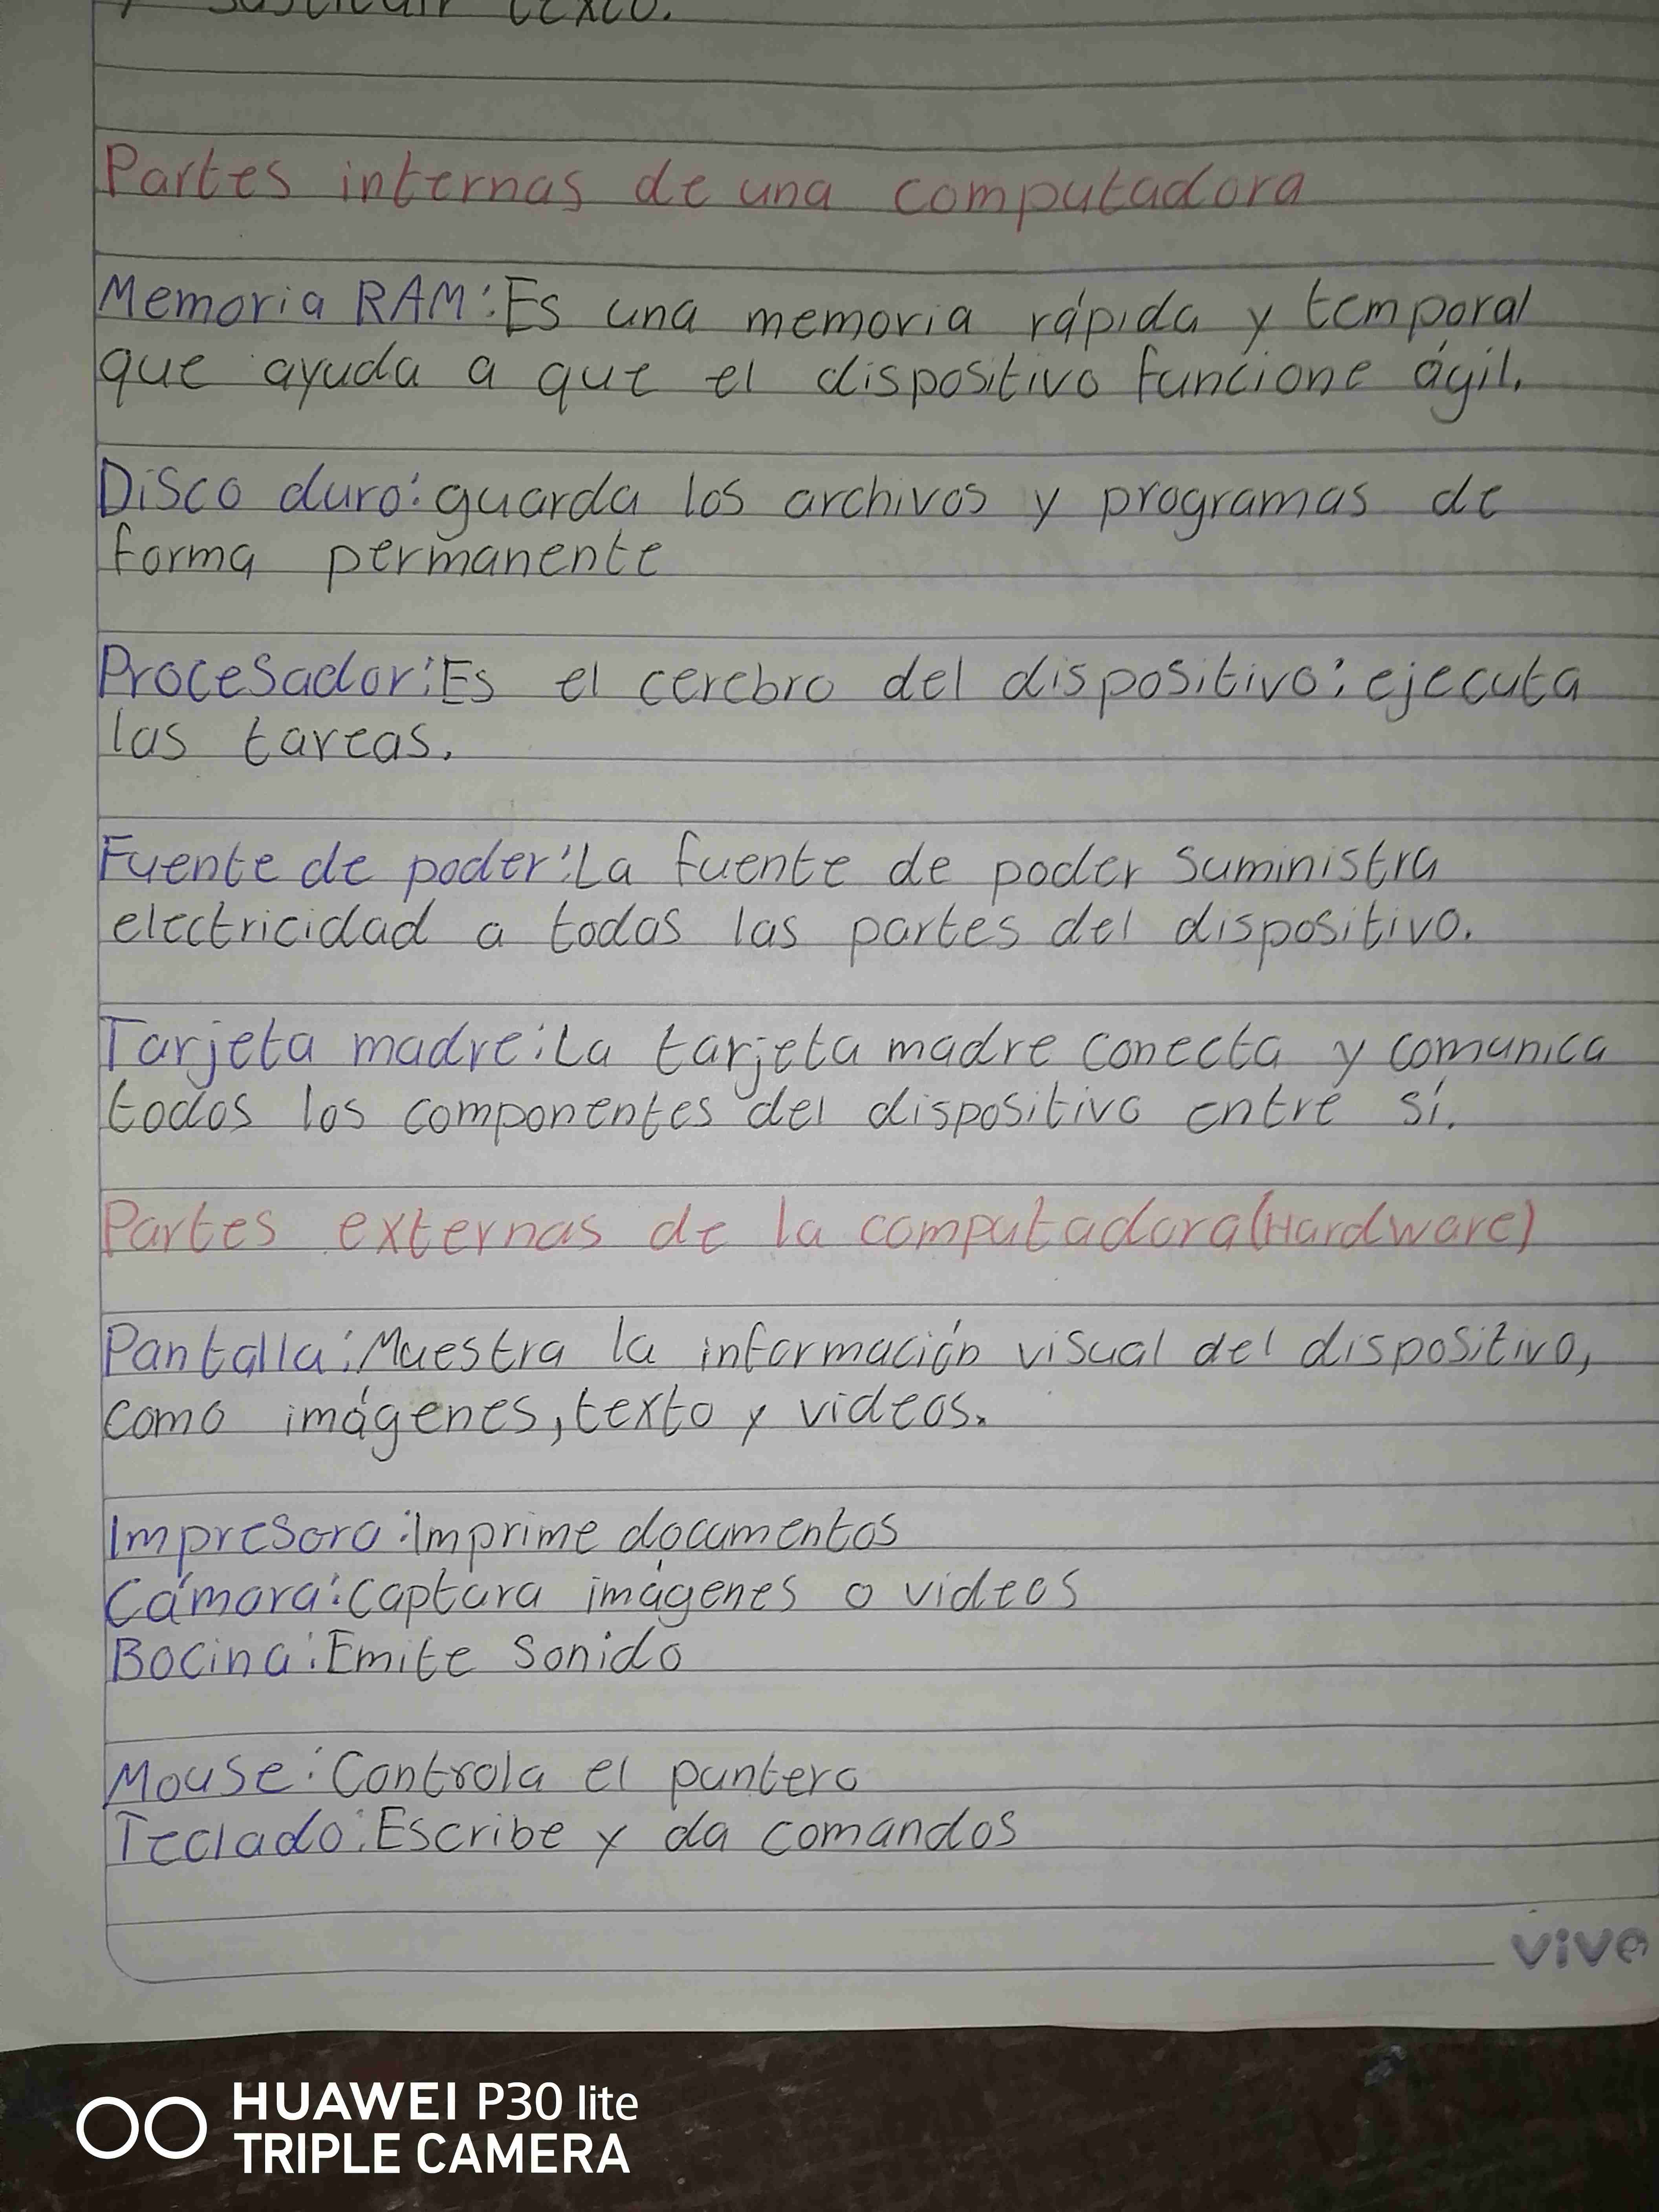 y sustituir texto.
Partes internas de una computadora
Memoria RAM: Es una memoria rápida y temporal
que ayuda a que el dispositivo funcione ágil.
Disco duro: guarda los archivos y programas de
forma permanente
Procesador: Es el cerebro del dispositivo: ejecuta
las tareas.
Fuente de poder: La fuente de poder suministra
electricidad a todas las partes del dispositivo.
Tarjeta madre: La tarjeta madre conecta y comunica
todos los componentes del dispositivo entre sí.
Partes externas de la computadora (Hardware)
Pantalla: Muestra la información visual del dispositivo,
como imágenes, texto y videos.
Impresora: Imprime documentos
Cámara: Captura imágenes o videos
Bocina: Emite sonido
Mouse: Controla el puntero
Teclado: Escribe y da comandos
vive
HUAWEI P30 lite
TRIPLE CAMERA